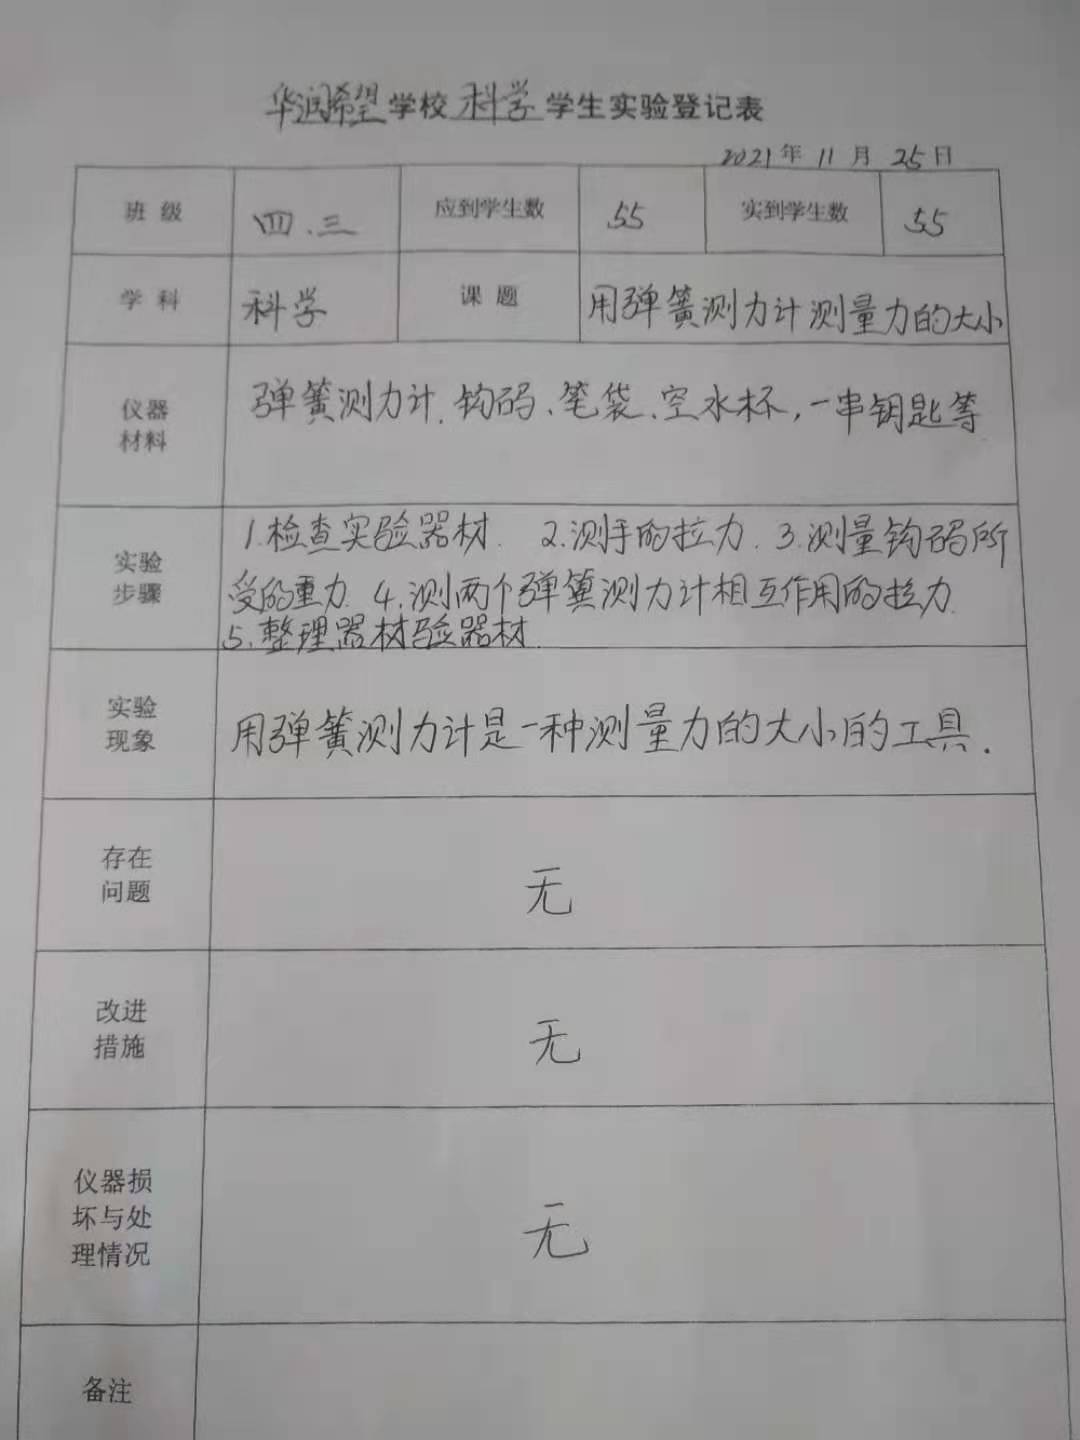 华润希望学校科学学生实验登记表
2021年11月25日
班级 四.三 应到学生数 55 实到学生数 55
学科 科学 课题 用弹簧测力计测量力的大小
仪器
材料
弹簧测力计、钩码、笔袋、空水杯,一串钥匙等
实验
步骤
1.检查实验器材. 2.测手的拉力. 3.测量钩码所
受的重力. 4.测两个弹簧测力计相互作用的拉力.
5.整理器材验器材.
实验
现象
用弹簧测力计是一种测量力的大小的工具.
存在
问题
无
改进
措施
无
仪器损
坏与处
理情况
无
备注